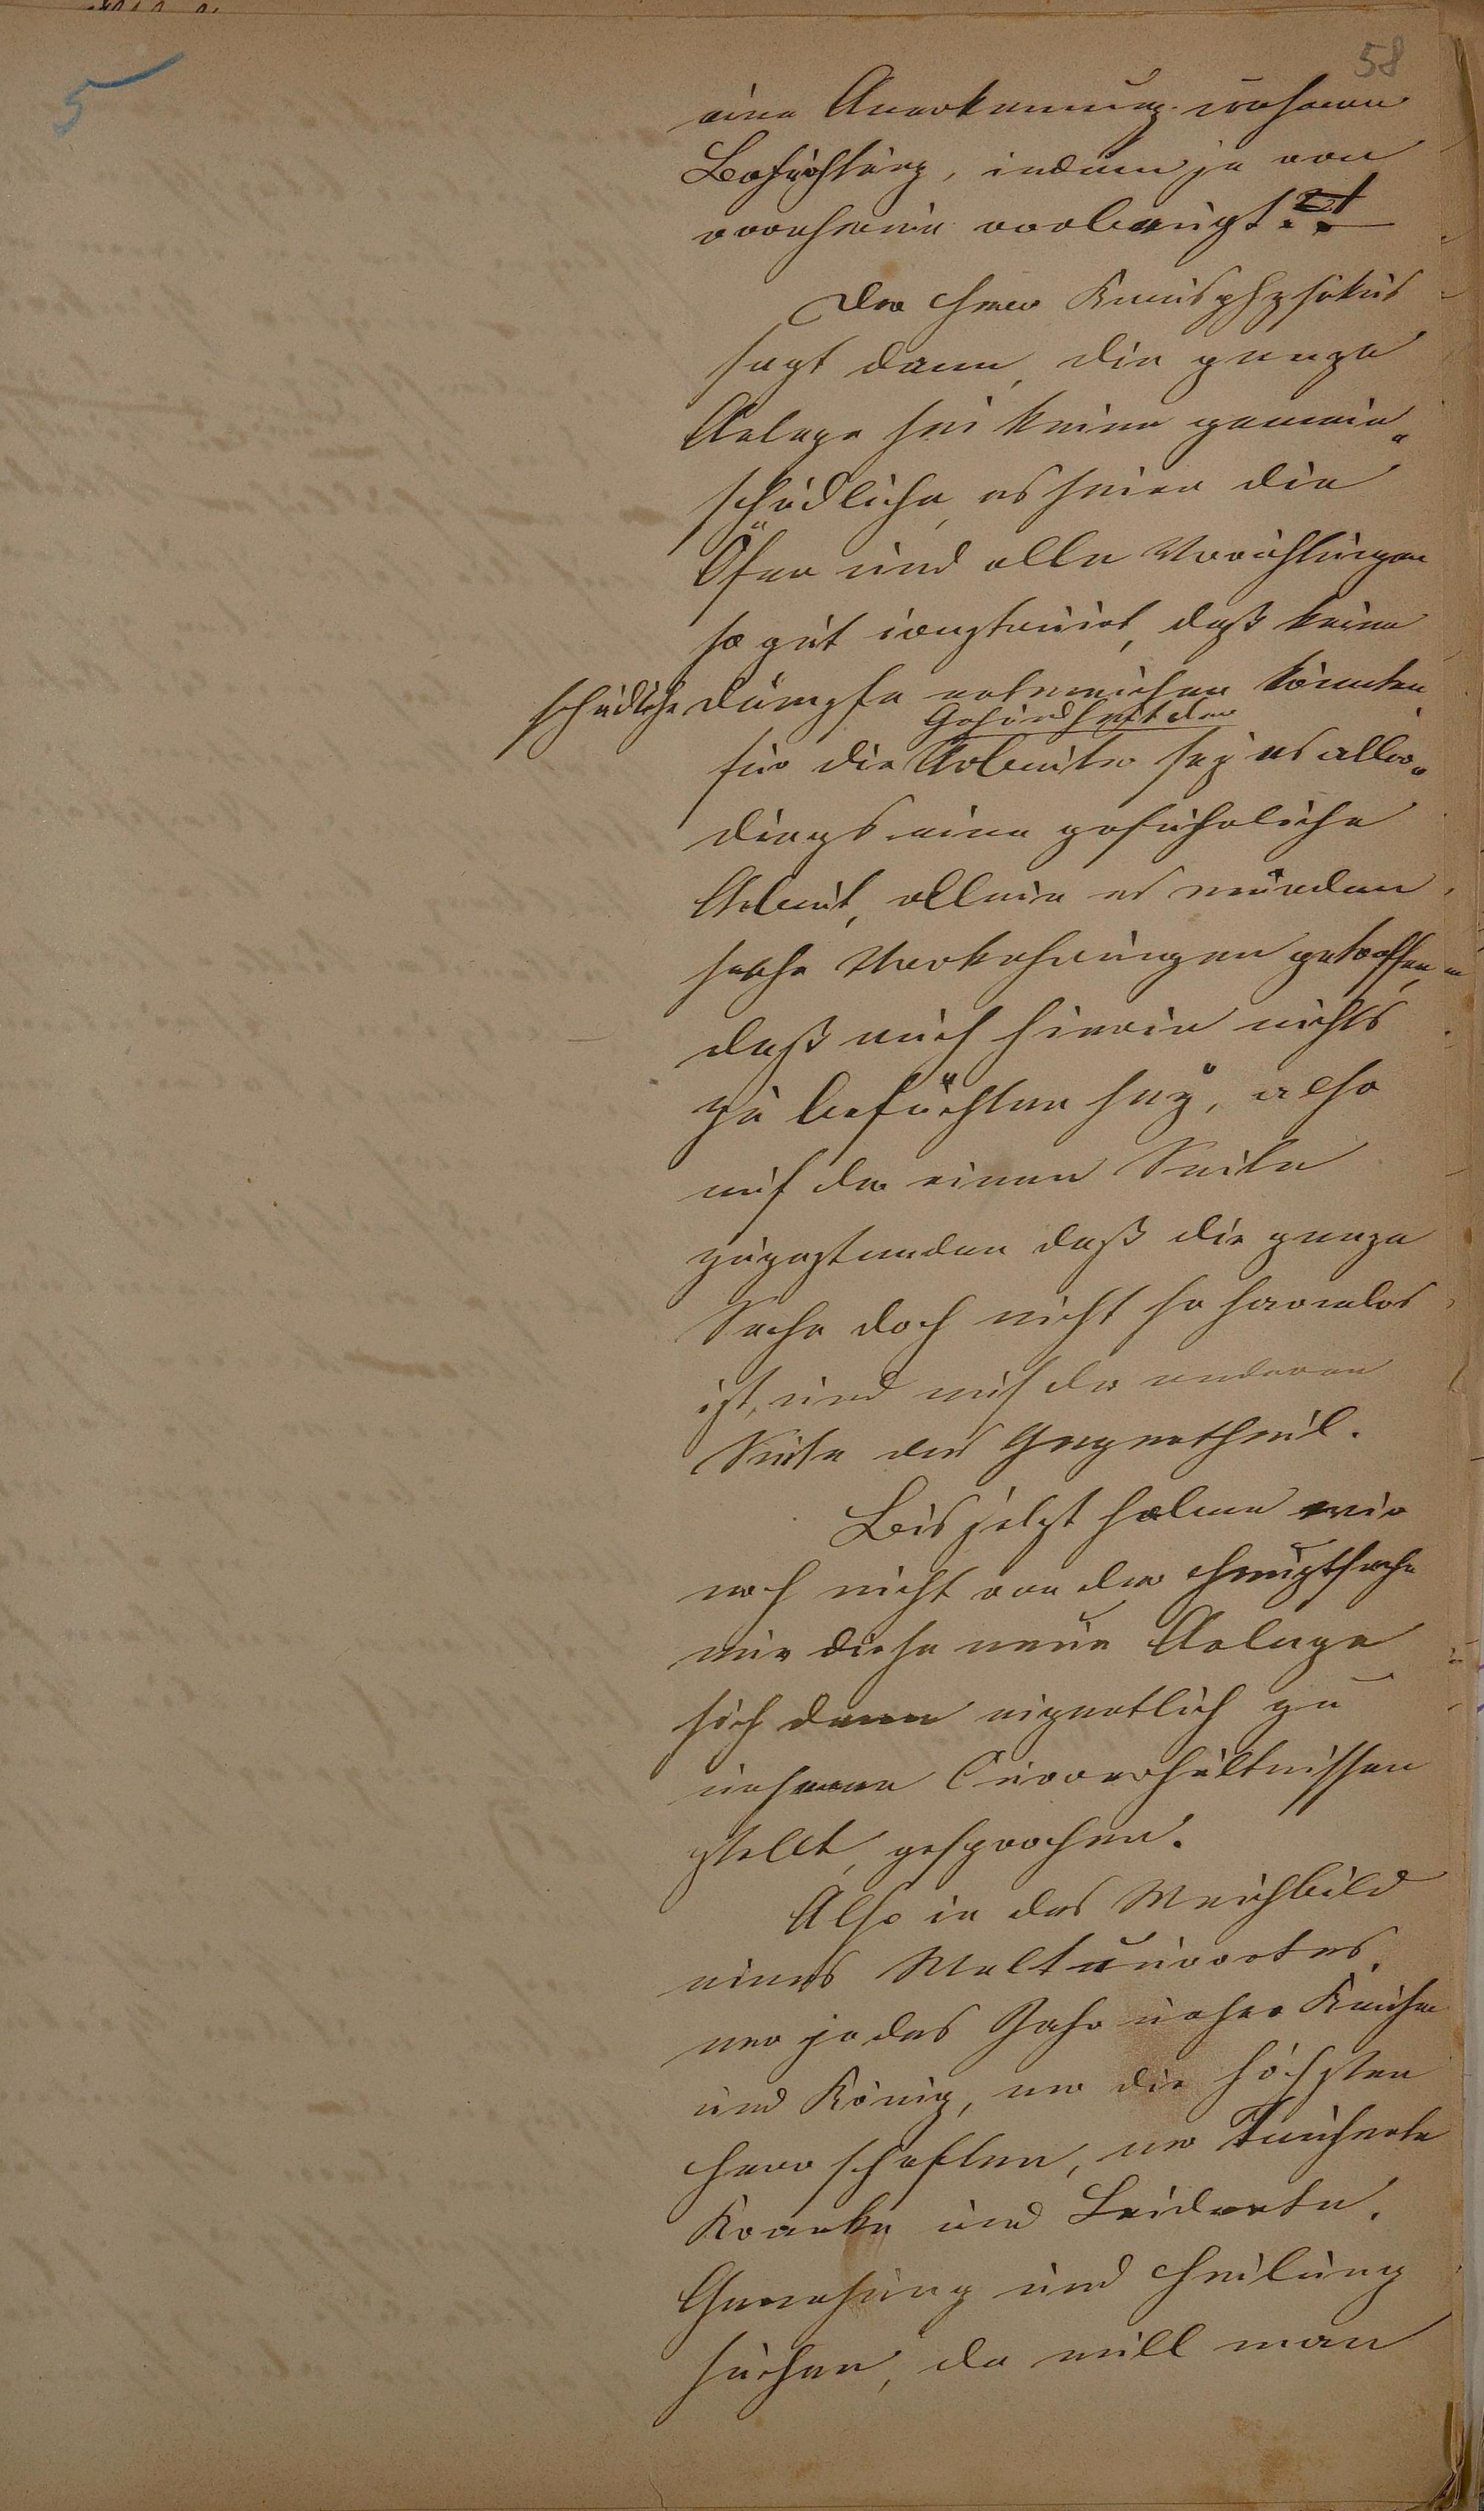 5
58
eine Anerkennung unserer
Befürchtung, indem ja von
vornherein vorbeugt?!
Der Herr Kreisphysikus
sagt dann, die ganze
Anlage sei keine gemein-
schädliche, es seien die
Öfen und alle Vorrichtungen
so gut construirt, daß keine
schädliche Dämpfe entweichen könnten
Gesundheit der
für die Arbeiter sey es aller-
dings eine gefährliche
Arbeit, allein es würden
solche Vorkehrungen getroffen,
daß auch hierin nichts
zu befürchten sey, also
auf der einen Seite
zugestanden daß die ganze
Sache doch nicht so harmlos
ist, und auf der anderen
Seite das Gegentheil.
Bis jetzt haben wir
noch nicht von der Hauptsache
wie diese neue Anlage
sich denn eigentlich zu
unseren Curverhältnissen
stellt, gesprochen.
Also in das Weichbild
eines Weltcurortes,
wo jedes Jahr unser Kaiser
und König, wo die höchsten
Herrschaften, wo Tausende
Kranke und Leidende,
Genesung und Heilung
suchen, da will man